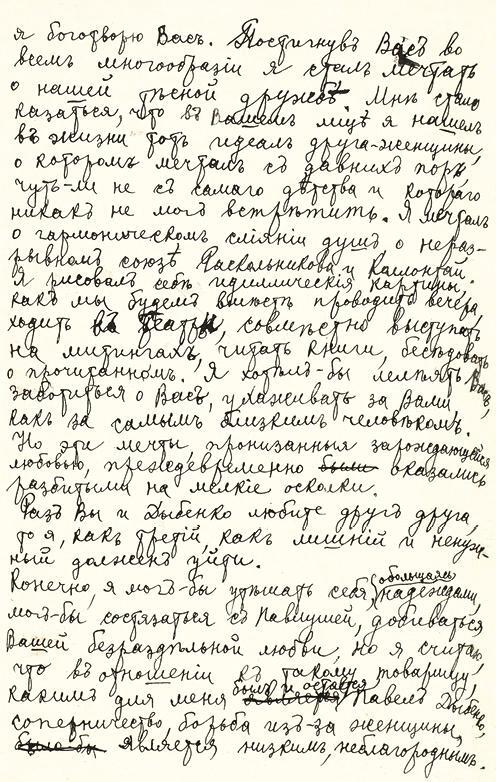 я боготворю Васъ. Постигнувъ Васъ во
всемъ многообразіи я сталъ мечтать
о нашей тѣсной дружбѣ. Мнѣ стало
казаться, что въ Вашемъ лицѣ я нашелъ
въ жизни тотъ идеалъ друга-женщины,
о которомъ мечталъ съ давнихъ поръ,
чуть-ли не съ самаго дѣтства и котораго
никакъ не могъ встрѣтить. Я мечталъ
о гармоническомъ сліяніи душъ о нераз-
рывномъ союзѣ Раскольникова и Каллонтай.
Я рисовалъ себѣ идиллическія картины,
какъ мы будемъ вмѣстѣ проводить вечера,
ходить въ театры, совмѣстно выступать
на митингахъ, читать книги, бесѣдовать
о прочитанномъ. Я хотѣлъ-бы лелѣять Васъ,
заботиться о Васъ, ухаживать за Вами
какъ за самымъ близкимъ человѣкомъ.
Но эти мечты пронизанныя зарождающейся
любовью, преждевременно были оказались
разбитыми на мелкіе осколки.
Разъ Вы и Дыбенко любите другъ друга,
то я, какъ третій, какъ лишній и ненуж-
ный долженъ уйти.
Конечно, я могъ-бы утѣшать себя обольщаясь надеждами,
могъ-бы состязаться съ Павлушей, добиваться
Вашей безраздѣльной любви, но я считаю,
что въ отношеніи къ такому товарищу,
какимъ для меня былъ и остается является Павелъ Дыбенко,
соперничество, борьба изъ-за женщины,
было-бы является низкимъ, неблагороднымъ.